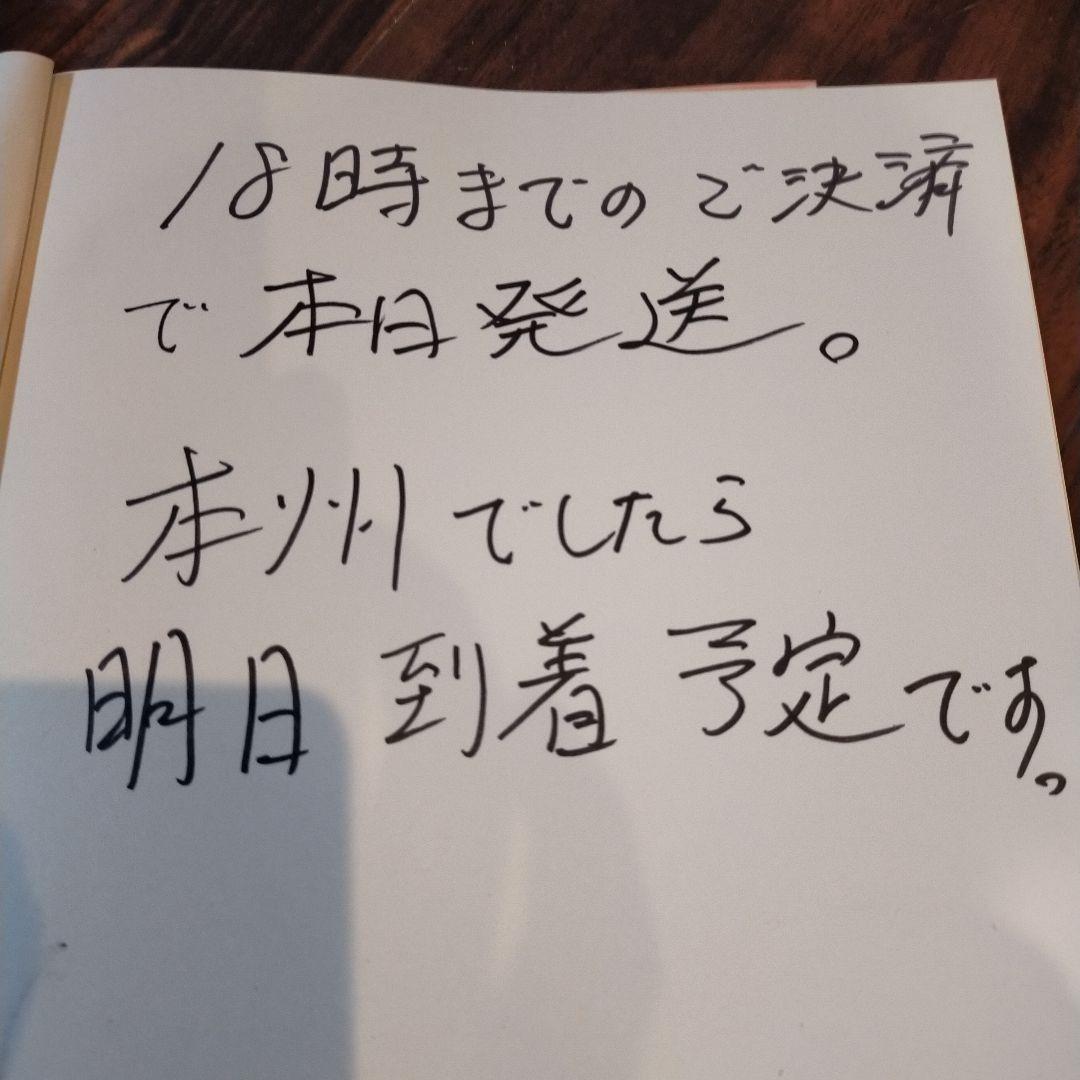 18時までのご決済
で本日発送。
本州でしたら
明日到着予定です。